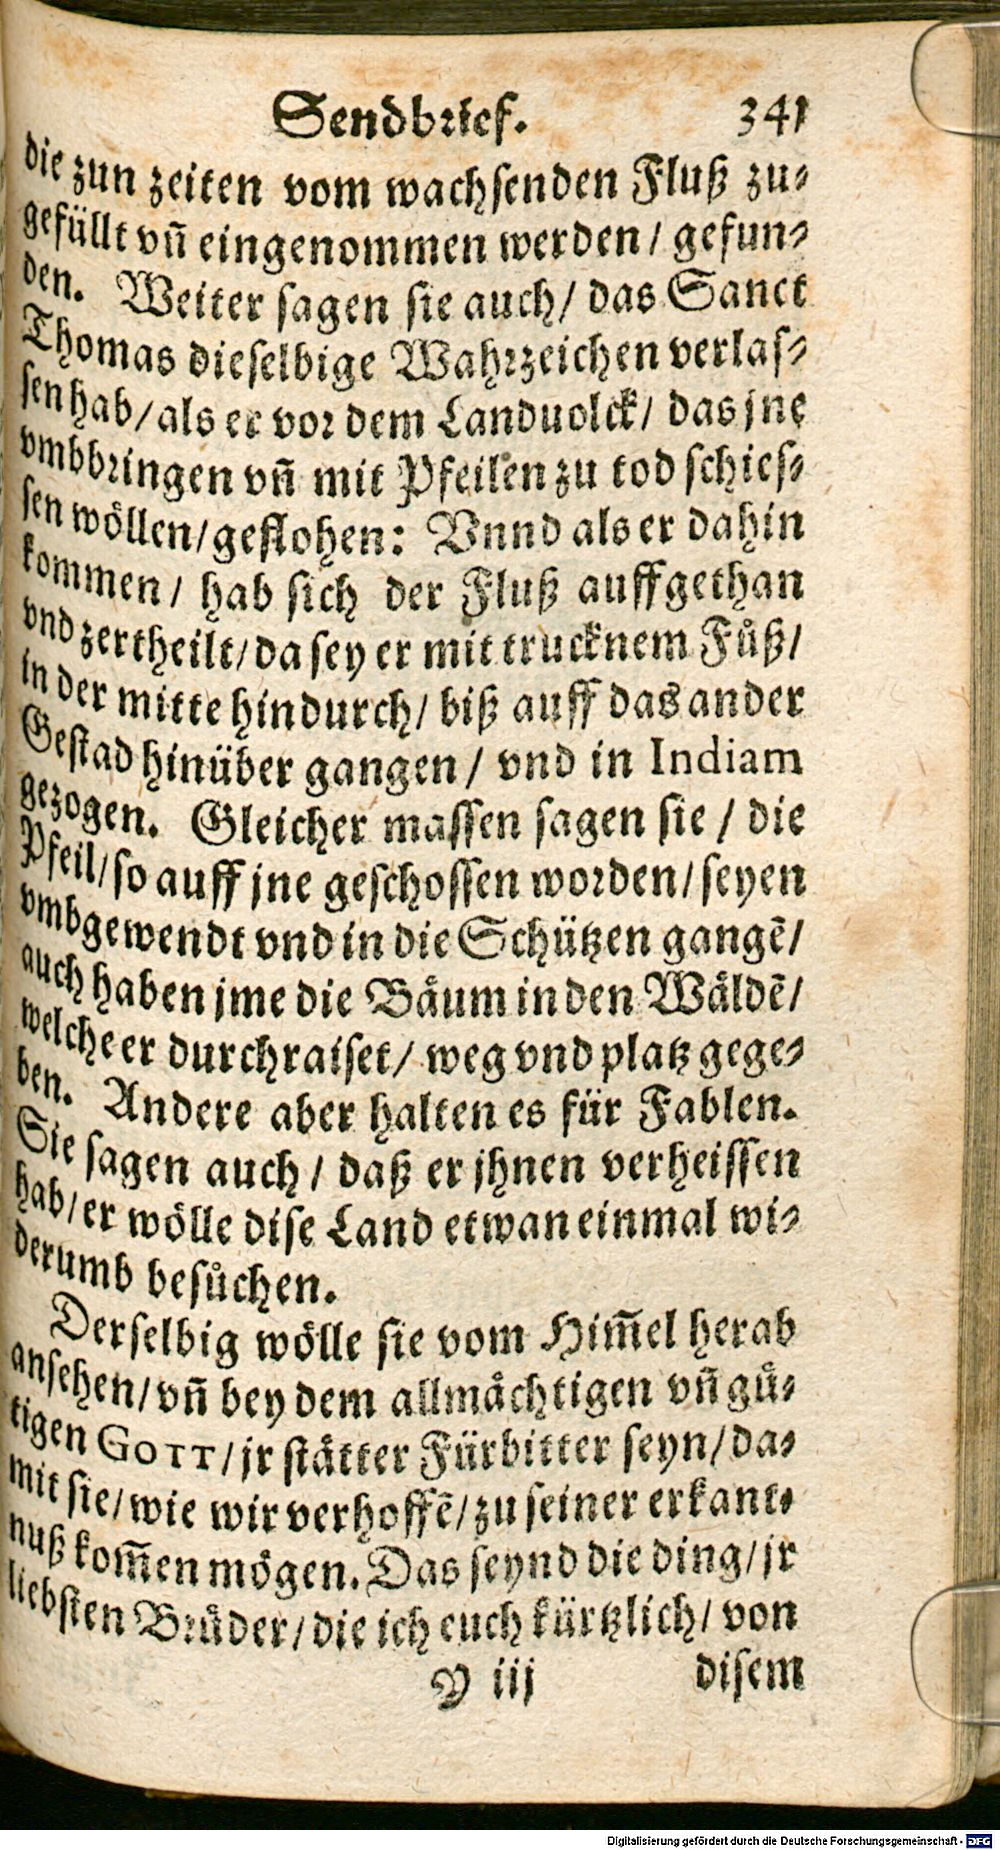 Sendbrief. 341
die zun zeiten vom wachsenden Fluß zu-
gefüllt vñ eingenommen werden / gefun-
den. Weiter sagen sie auch / das Sanct
Thomas dieselbige Wahrzeichen verlas-
sen hab / als er vor dem Landuolck / das jne
vmbbringen vñ mit Pfeilen zu tod schies-
sen wöllen / geflohen: Vnnd als er dahin
kommen / hab sich der Fluß auffgethan
vnd zertheilt / da sey er mit trucknem Fůß /
in der mitte hindurch / biß auff das ander
Gestad hinüber gangen / vnd in Indiam
gezogen. Gleicher massen sagen sie / die
Pfeil / so auff jne geschossen worden / seyen
vmbgewendt vnd in die Schützen gangẽ /
auch haben jme die Bäum in den Wäldẽ /
welche er durchraiset / weg vnd platz gege-
ben. Andere aber halten es für Fablen.
Sie sagen auch / daß er jhnen verheissen
hab / er wölle dise Land etwan einmal wi-
derumb besůchen.
Derselbig wölle sie vom Him̃el herab
ansehen / vñ bey dem allmächtigen vñ gů-
tigen GOTT / jr stätter Fürbitter seyn / da-
mit sie / wie wir verhoffẽ / zu seiner erkant-
nuß kom̃en mögen. Das seynd die ding / jr
liebsten Brůder / die ich euch kürtzlich / von
Y iij disem
Digitalisierung gefördert durch die Deutsche Forschungsgemeinschaft - DFG